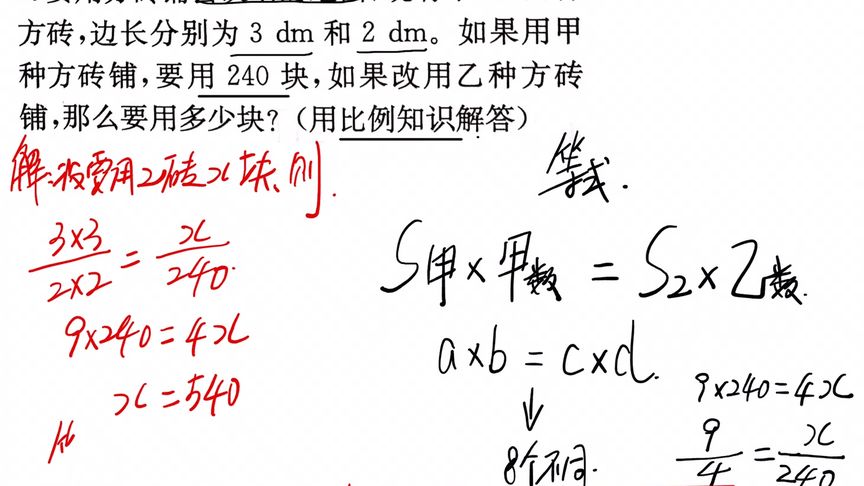 方砖,边长分别为 3 dm 和 2 dm。如果用甲
种方砖铺,要用 240 块,如果改用乙种方砖
铺,那么要用多少块?(用比例知识解答)
解:设要用乙砖x块,则
3×3/2×2 = x/240.
9×240=4x
x=540
等式.
S甲×甲数 = S乙×乙数.
a×b = c×d.
↓
8个不同.
9×240=4x
9/4 = x/240